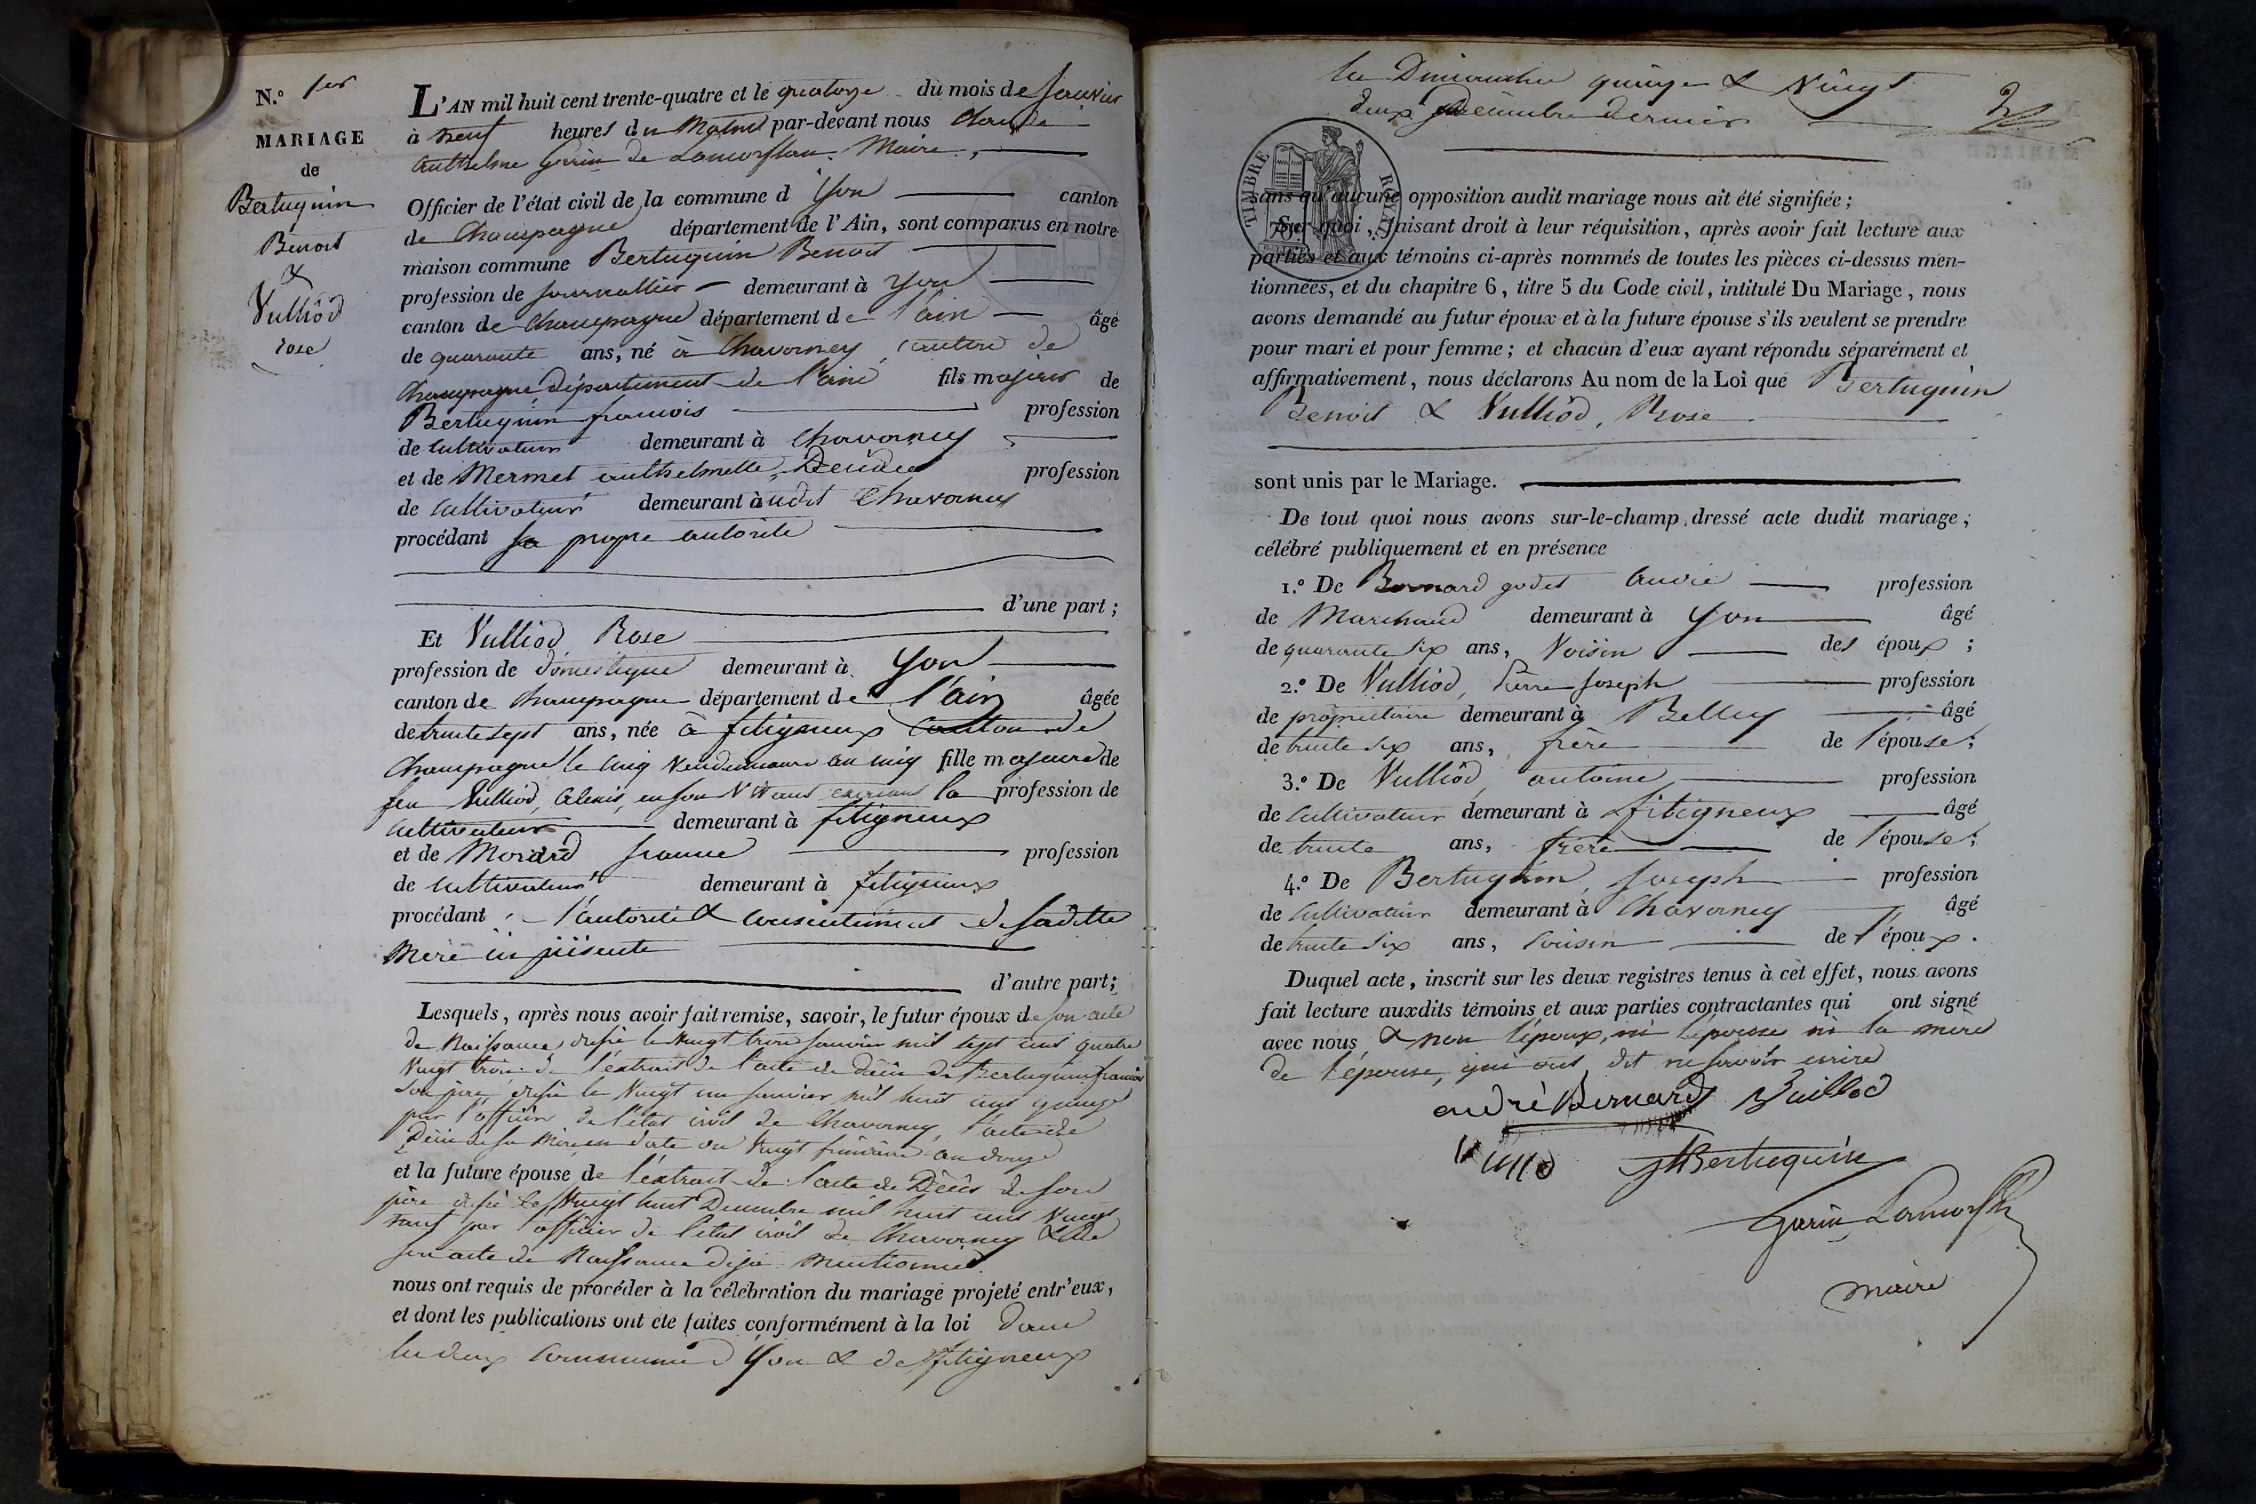 N.º 1er
MARIAGE
de
Bertuquin
Benoit
&
Vulliod
rose
L'AN mil huit cent trente-quatre et le quatorze du mois de Janvier
à neuf heures du Matin par-devant nous Claude
Anthelme Garin de Lamorflan Maire,
Officier de l'état civil de la commune d Yon canton
de Champagne département de l'Ain, sont comparus en notre
maison commune Bertuquin Benoit
profession de journallier demeurant à Yon
canton de Champagne département de l'ain âgé
de quarante ans, né à Chavorney, canton de
Champagne, département de l'ain fils majeur de
Bertuquin francois profession
de cultivateur demeurant à Chavorney
et de Mermet anthelmette, Décédée profession
de cultivateur demeurant àudit Chavorney
procédant sa propre autorité
d'une part ;
Et Vulliod Rose
profession de domestique demeurant à Yon
canton de Champagne département de l'ain âgée
de trente sept ans, née à fitigneux canton de
Champagne le cinq Vendemiaire an cinq fille majeure de
feu Vulliod, Alexis, en son vivant exercant la profession de
cultivateur demeurant à fitigneux
et de Morard Jeanne profession
de cultivateur demeurant à fitigneux
procédant l'autorité & consentement de saditte
Mère ici présente
d'autre part;
Lesquels, après nous avoir fait remise, savoir, le futur époux de son acte
de Naissance dressé le vingt trois Janvier mil sept cent quatre
Vingt treize de l'extrait de l'acte de décès de Bertuquin francois
son père, dressé le Vingt un janvier mil huit cent quinze
par l'officier de l'état civil de Chavorney, l'acte de
Décès de sa Mère en date du Vingt frimaire an douze
et la future épouse de l'extrait de l'acte de Décès de son
père dressé le Vingt huit Decembre mil huit cent Vingt
neuf par l'officier de l'état civil de Chavorney & de
son acte de Naissance déjà mentionné
nous ont requis de procéder à la célébration du mariage projeté entr'eux,
et dont les publications ont été faites conformément à la loi dans
les deux communes d'Yon & de fitigneux
les Dimanches quinze & Vingt
deux Décembre dernier
2
TIMBRE ROYAL
sans qu'aucune opposition audit mariage nous ait été signifiée ;
Sur quoi, faisant droit à leur réquisition, après avoir fait lecture aux
parties et aux témoins ci-après nommés de toutes les pièces ci-dessus men-
tionnées, et du chapitre 6, titre 5 du Code civil, intitulé Du Mariage, nous
avons demandé au futur époux et à la future épouse s'ils veulent se prendre
pour mari et pour femme ; et chacun d'eux ayant répondu séparément et
affirmativement, nous déclarons Au nom de la Loi que Bertuquin
Benoit & Vulliod, Rose
sont unis par le Mariage.
De tout quoi nous avons sur-le-champ dressé acte dudit mariage,
célébré publiquement et en présence
1.º De Bernard godet André profession
de Marchand demeurant à Yon âgé
de quarante six ans, Voisin des époux ;
2.º De Vulliod, Pierre Joseph profession
de propriétaire demeurant à Belley âgé
de trente six ans, frère de l'épouse ;
3.º De Vulliod, antoine profession
de cultivateur demeurant à fitigneux âgé
de trente ans, frère de l'épouse ;
4.º De Bertuquin, Joseph profession
de cultivateur demeurant à Chavorney âgé
de trente six ans, cousin de l'époux.
Duquel acte, inscrit sur les deux registres tenus à cet effet, nous avons
fait lecture auxdits témoins et aux parties contractantes qui ont signé
avec nous & non l'époux, ni l'épouse ni la mère
de l'épouse, qui ont dit ne savoir écrire
andré Bernard Vuilliod
JBertuquin
Garin Lamorflan
maire